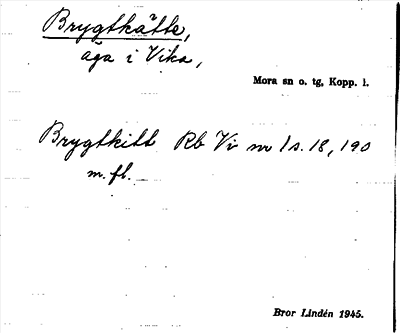 Brygtkätte,
äga i Vika,
Mora sn o. tg, Kopp. l.
Brygtkitt Rb Vi nr 1 s. 18, 190
m. fl.
Bror Lindén 1945.